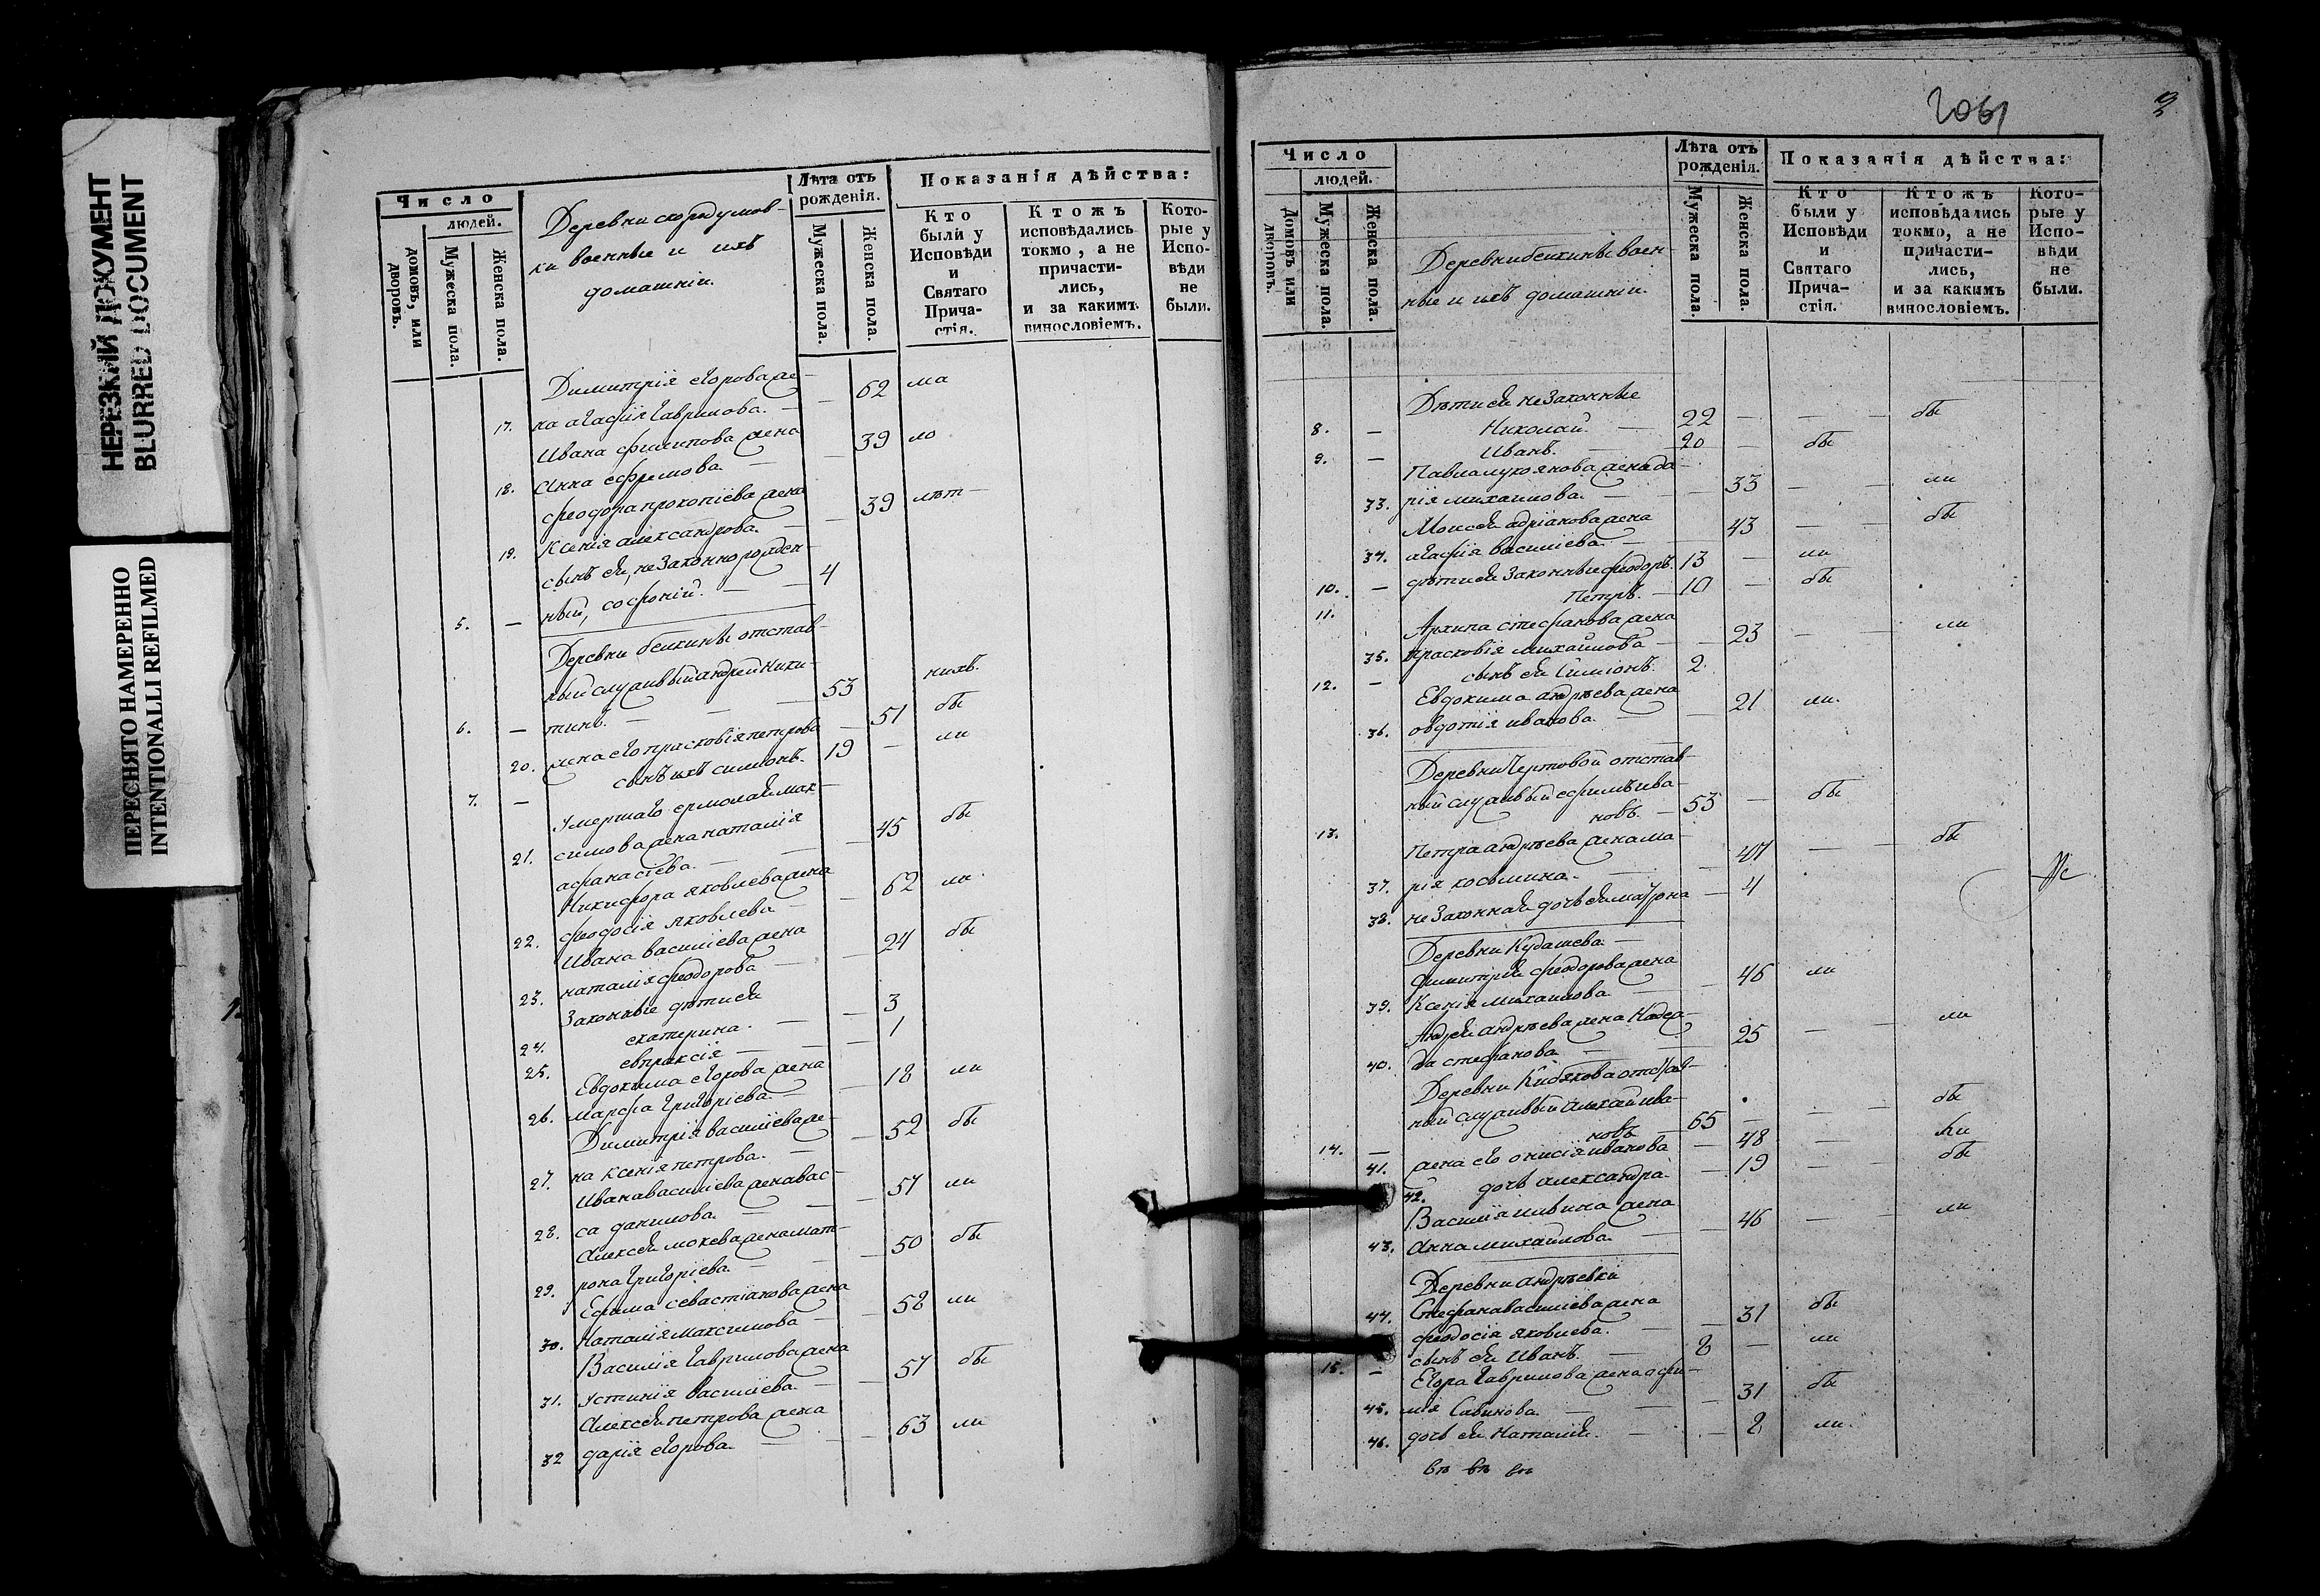 НЕРЕЗКИЙ ДОКУМЕНТ
BLURRED DOCUMENT
ПЕРЕСНЯТО НАМЕРЕННО
INTENTIONALLI REFILMED
Число
людей.
домовъ, или дворовъ.
Мужеска пола
Женска пола.
Деревни скородумов-
ки военные и ихъ
домашніи.
Лѣта отъ рожденія.
Мужеска пола.
Женска пола.
Показанія дѣйства:
Кто были у Исповѣди и Святаго Причастія.
Ктожъ исповѣдались токмо, а не причастились, и за какимъ винословіемъ.
Которые у Исповѣди не были.
Димитрія егорова же-
17. на агафія гаврилова. — 62 ма
Ивана филипова жена
18. Анна ефремова — 39 ло
феодора прокопіева жена
19. Ксенія александрова. — 39 лѣт
сынъ ея, незаконорожден-
5. — ный, софроній. — 4
Деревни бекинѣ отстав-
ный служивый андрей ники-
6. — тинъ. — 53 нихъ.
20. жена его прасковія петрова — 51 бы
7. — сынъ ихъ симіонъ. 19 — ли
Умершаго ермолая мак-
симова жена наталія
21. афанасіева. — 45 бы
Никифора яковлева жена
22. феодосія яковлева — 62 ли
Ивана василіева жена
23. наталія феодорова — 24 бы
Законные дѣти ея
24. екатерина. — 3
25. евпраксія — 1
Евдокима егорова жена
26. марфа григоріева. — 18 ли
Димитрія василіева же-
27. на ксенія петрова. — 52 бы
Ивана василіева жена вас-
28. са данилова. — 57 ли
Алексея мокева жена мат-
29. рона григоріева. — 50 бы
Ефима севастіанова жена
30. Наталія максимова — 58 ли
Василія гаврилова жена
31. Устинія василіева. — 57 бы
Алексея петрова жена
32 дарія егорова. — 63 ли
Число
людей.
Домовъ или дворовъ.
Мужеска пола.
Женска пола.
Деревни бекинѣ воен-
ные и ихъ домашніи.
Лѣта отъ рожденія.
Мужеска пола.
Женска пола.
Показанія дѣйства:
Кто были у Исповѣди и Святаго Причастія.
Ктожъ исповѣдались токмо, а не причастились, и за какимъ винословіемъ.
Которые у Исповѣди не были.
Дѣти ея незаконные
8. — Николай. — 22 — — — бы
9. — Иванъ. 20 — бы
Павла лукоянова жена да-
33. рія михаилова. — 33 — — ли
Моисея адріанова жена
34. агафія василіева. — 43 — — бы
10. — дѣти ея законные феодоръ. 13 — ли
11. Петръ. — 10 — бы
Архипа стефанова жена
35. прасковія михайлова — 23 — — ли
12. — сынъ ея Симіонъ. 2
Евдокима андрѣева жена
36. овдотія иванова. — 21 ли.
Деревни Чертовой отстав-
ный служивый ефимъ ива-
13. новъ. — 53 — бы
Петра андрѣева жена ма-
37. рія косьмина. — 47 — — бы
38. незаконная дочь ея матрона — 4
Деревни Кудашева. —
Димитрія феодорова жена
39. Ксенія михаилова — 46 ли
Андрея андрѣева жена Надеж-
40. да стефанова — 25 — — ли
Деревни Кибякова отстав-
ный служивый Алексей ива-
14. — новъ — 65 — — — бы
41. жена его онисія иванова — 48 — ли
42. дочь александра. — 19 — бы
Василія ильина жена
43. Анна михайлова. — 46 — — ли
Деревни андрѣевки
Стефана василіева жена
44. феодосія яковлева. — 31 бы
15. — сынъ ея Иванъ. — 8 — ли
Егора гаврилова жена афи-
45. мія Савинова. — 31 бы
46. дочь ея Наталія. — 2 ли.